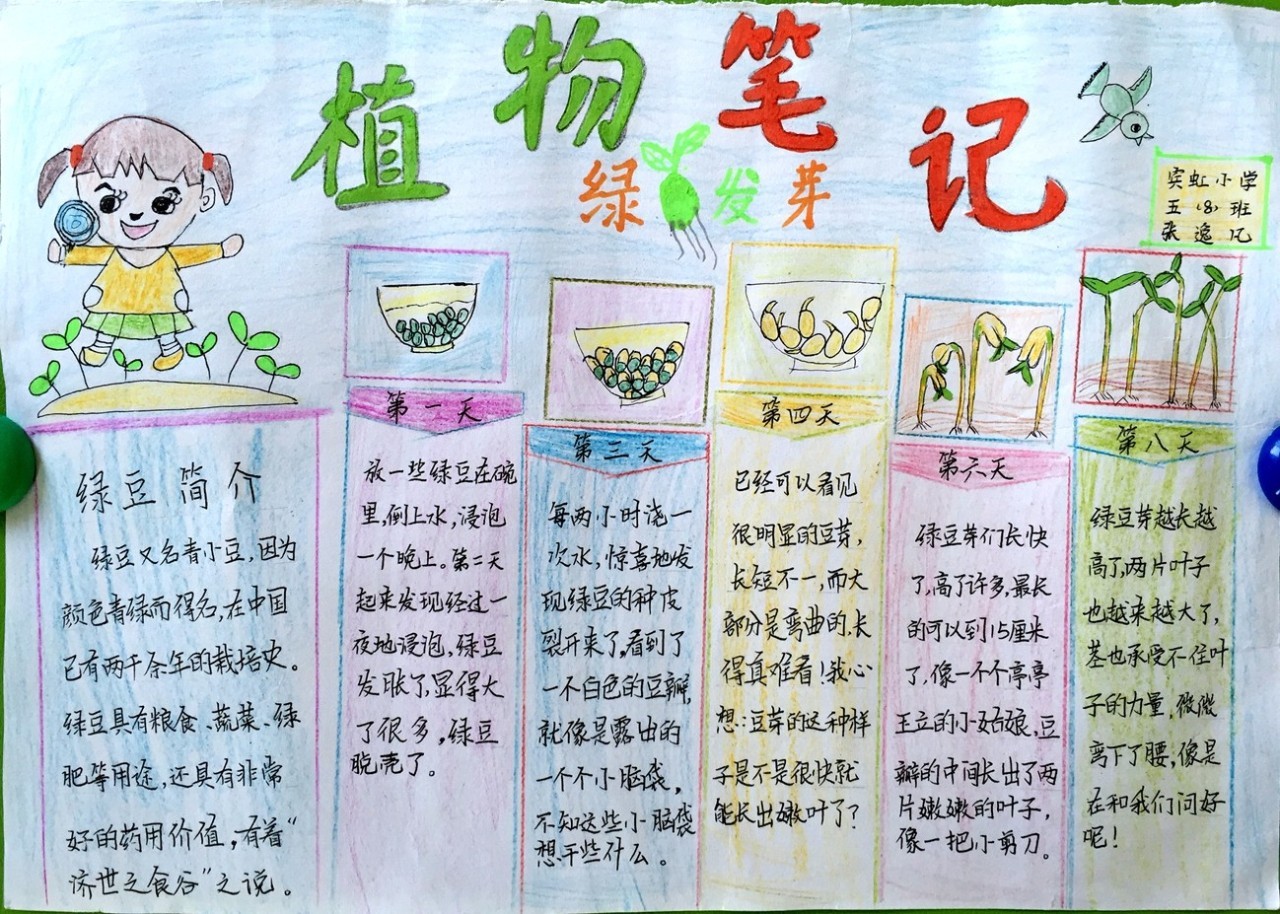 植物笔记
绿豆发芽
实虹小学
五(8)班
张逸凡
绿豆简介
绿豆又名青小豆,因为
颜色青绿而得名,在中国
已有两千余年的栽培史。
绿豆具有粮食、蔬菜、绿
肥等用途,还具有非常
好的药用价值,有着“
济世之食谷”之说。
第一天
放一些绿豆在碗
里,倒上水,浸泡
一个晚上。第二天
起来发现经过一
夜地浸泡,绿豆
发胀了,显得大
了很多,绿豆
脱壳了。
第三天
每两小时浇一
次水,惊喜地发
现绿豆的种皮
裂开来了,看到了
一不白色的豆瓣,
就像是露出的
一个不小脑袋,
不知这些小脑袋
想干些什么。
第四天
已经可以看见
很明显的豆芽,
长短不一,而大
部分是弯曲的,长
得真难看!我心
想:豆芽的这种样
子是不是很快就
能长出嫩叶了?
第六天
绿豆芽们长快
了,高了许多,最长
的可以到15厘米
了,像一个个亭亭
王立的小姑娘,豆
瓣的中间长出了两
片嫩嫩的叶子,
像一把小剪刀。
第八天
绿豆芽越长越
高了,两片叶子
也越来越大了,
茎也承受不住叶
子的力量,微微
弯下了腰,像是
在和我们问好
呢!